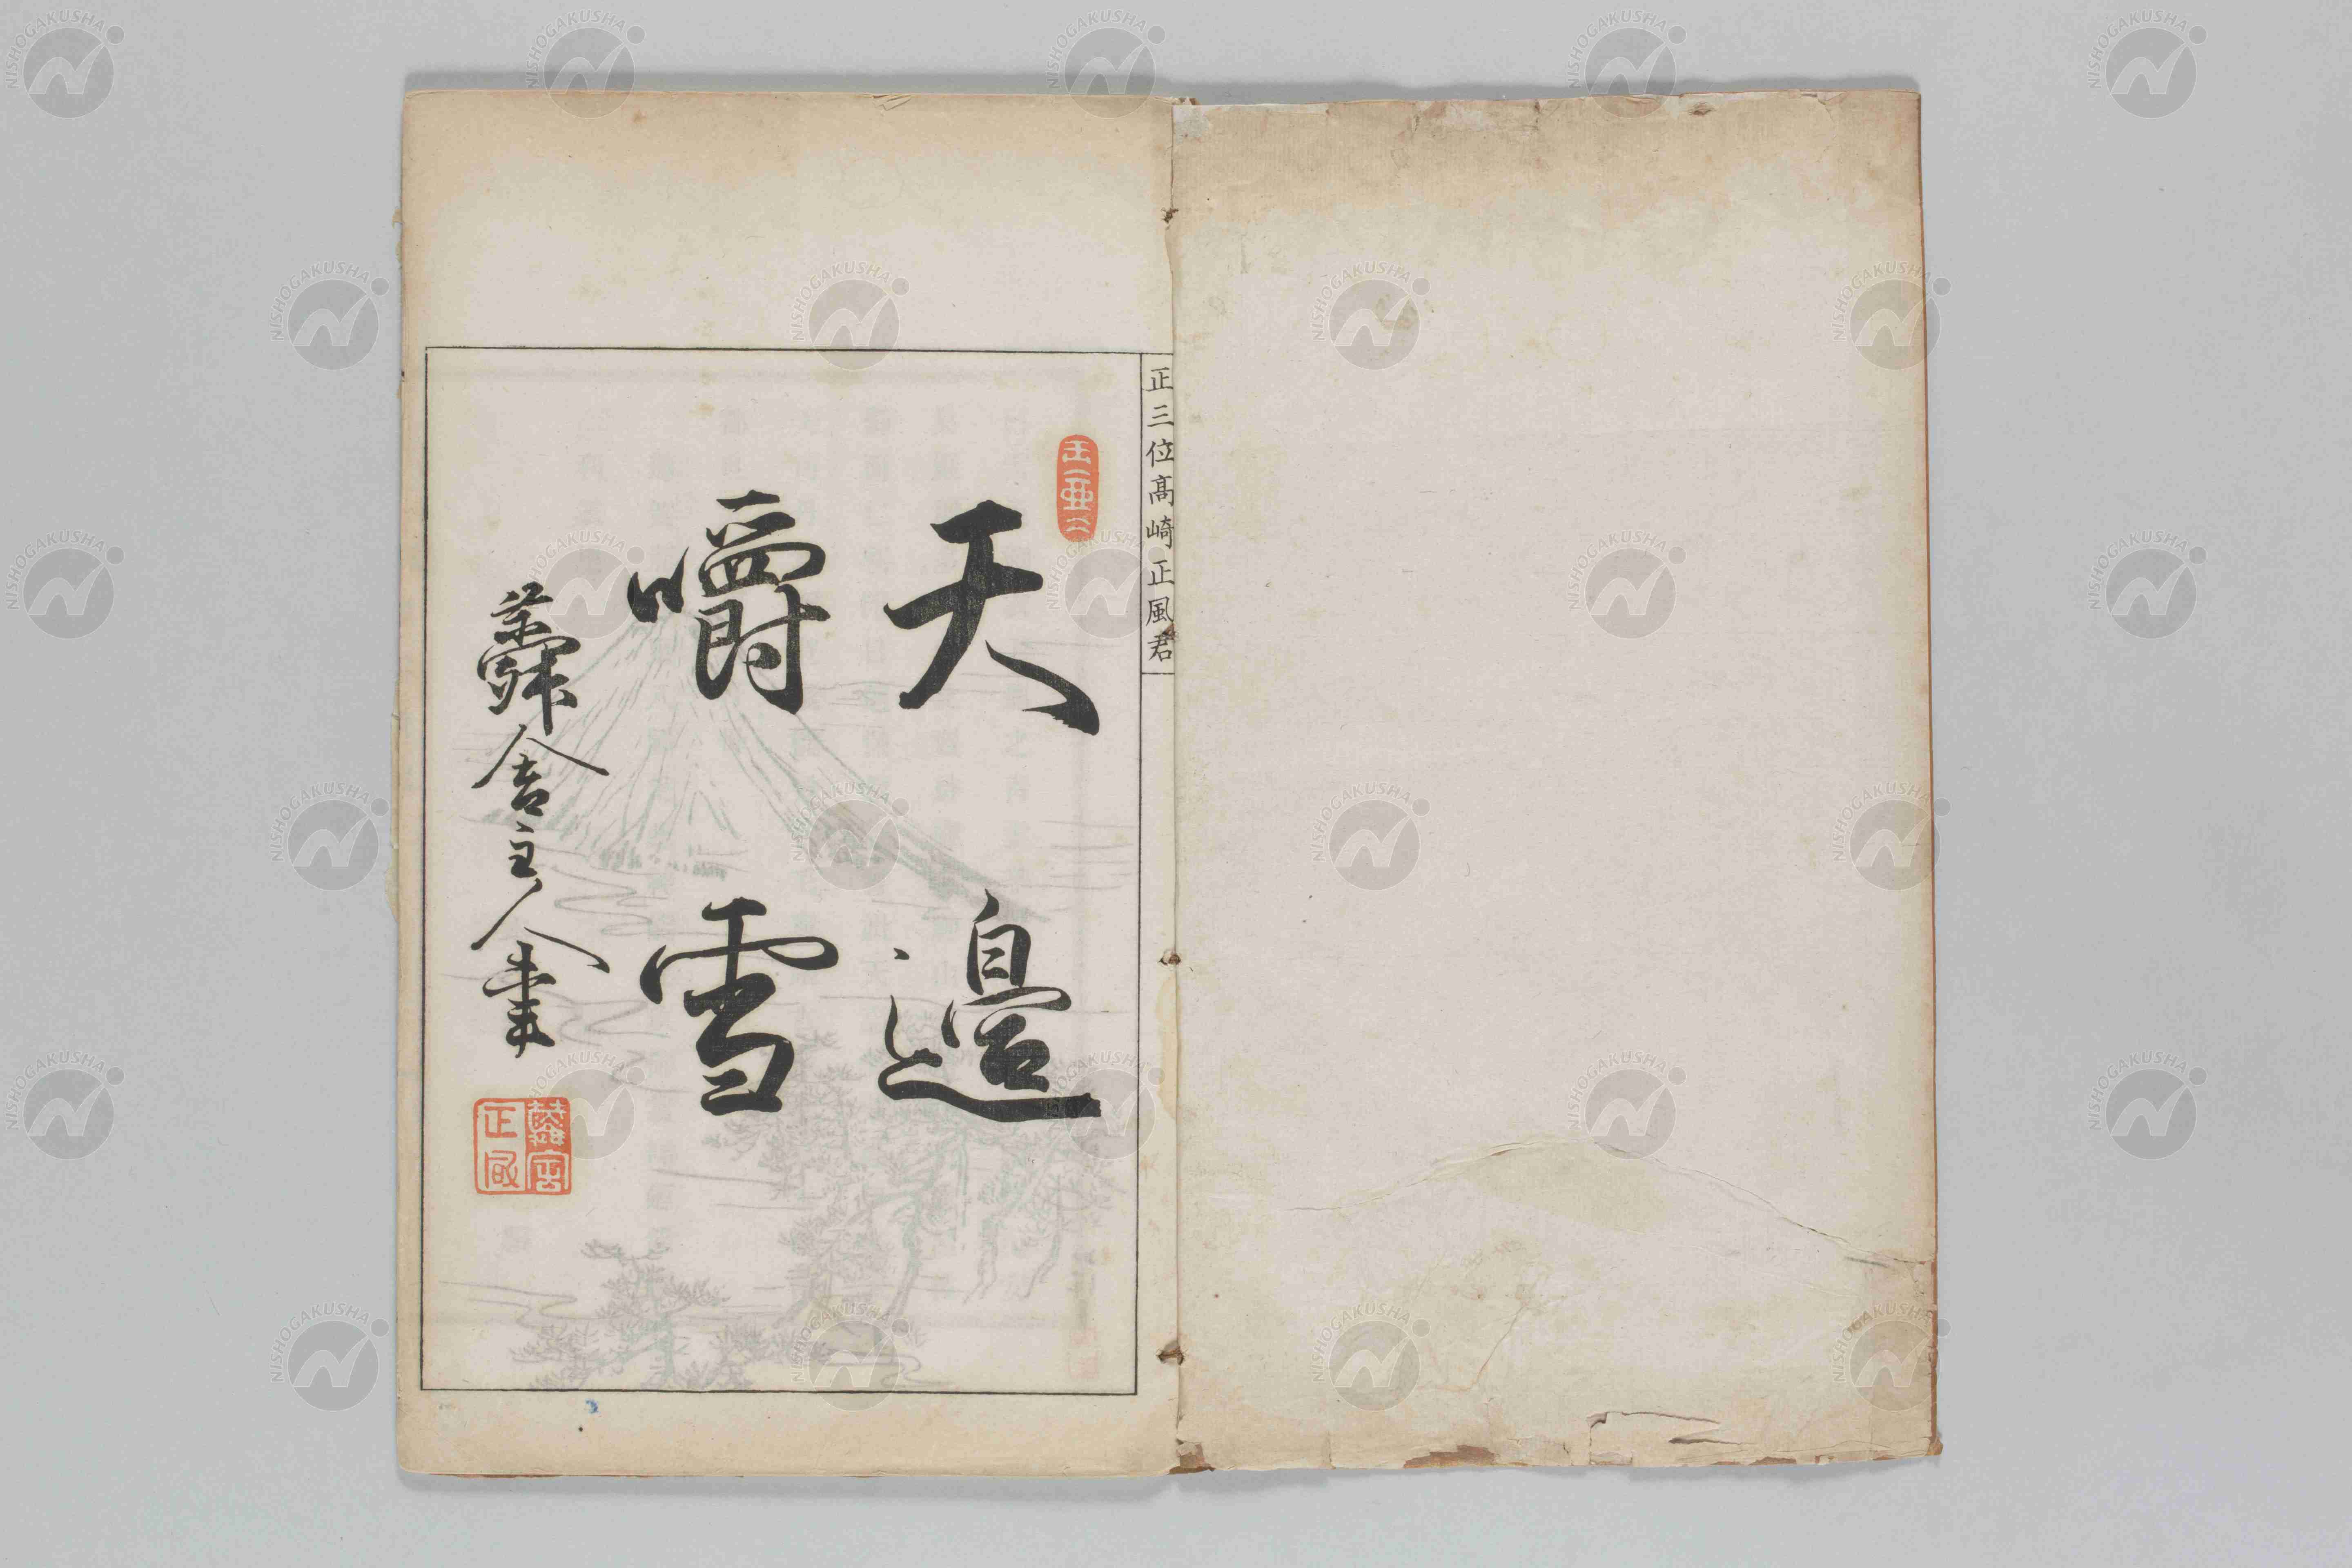 正三位髙崎正風君
天邉
嚼雪
蕣舎主人書
正風
NISHOGAKUSHA